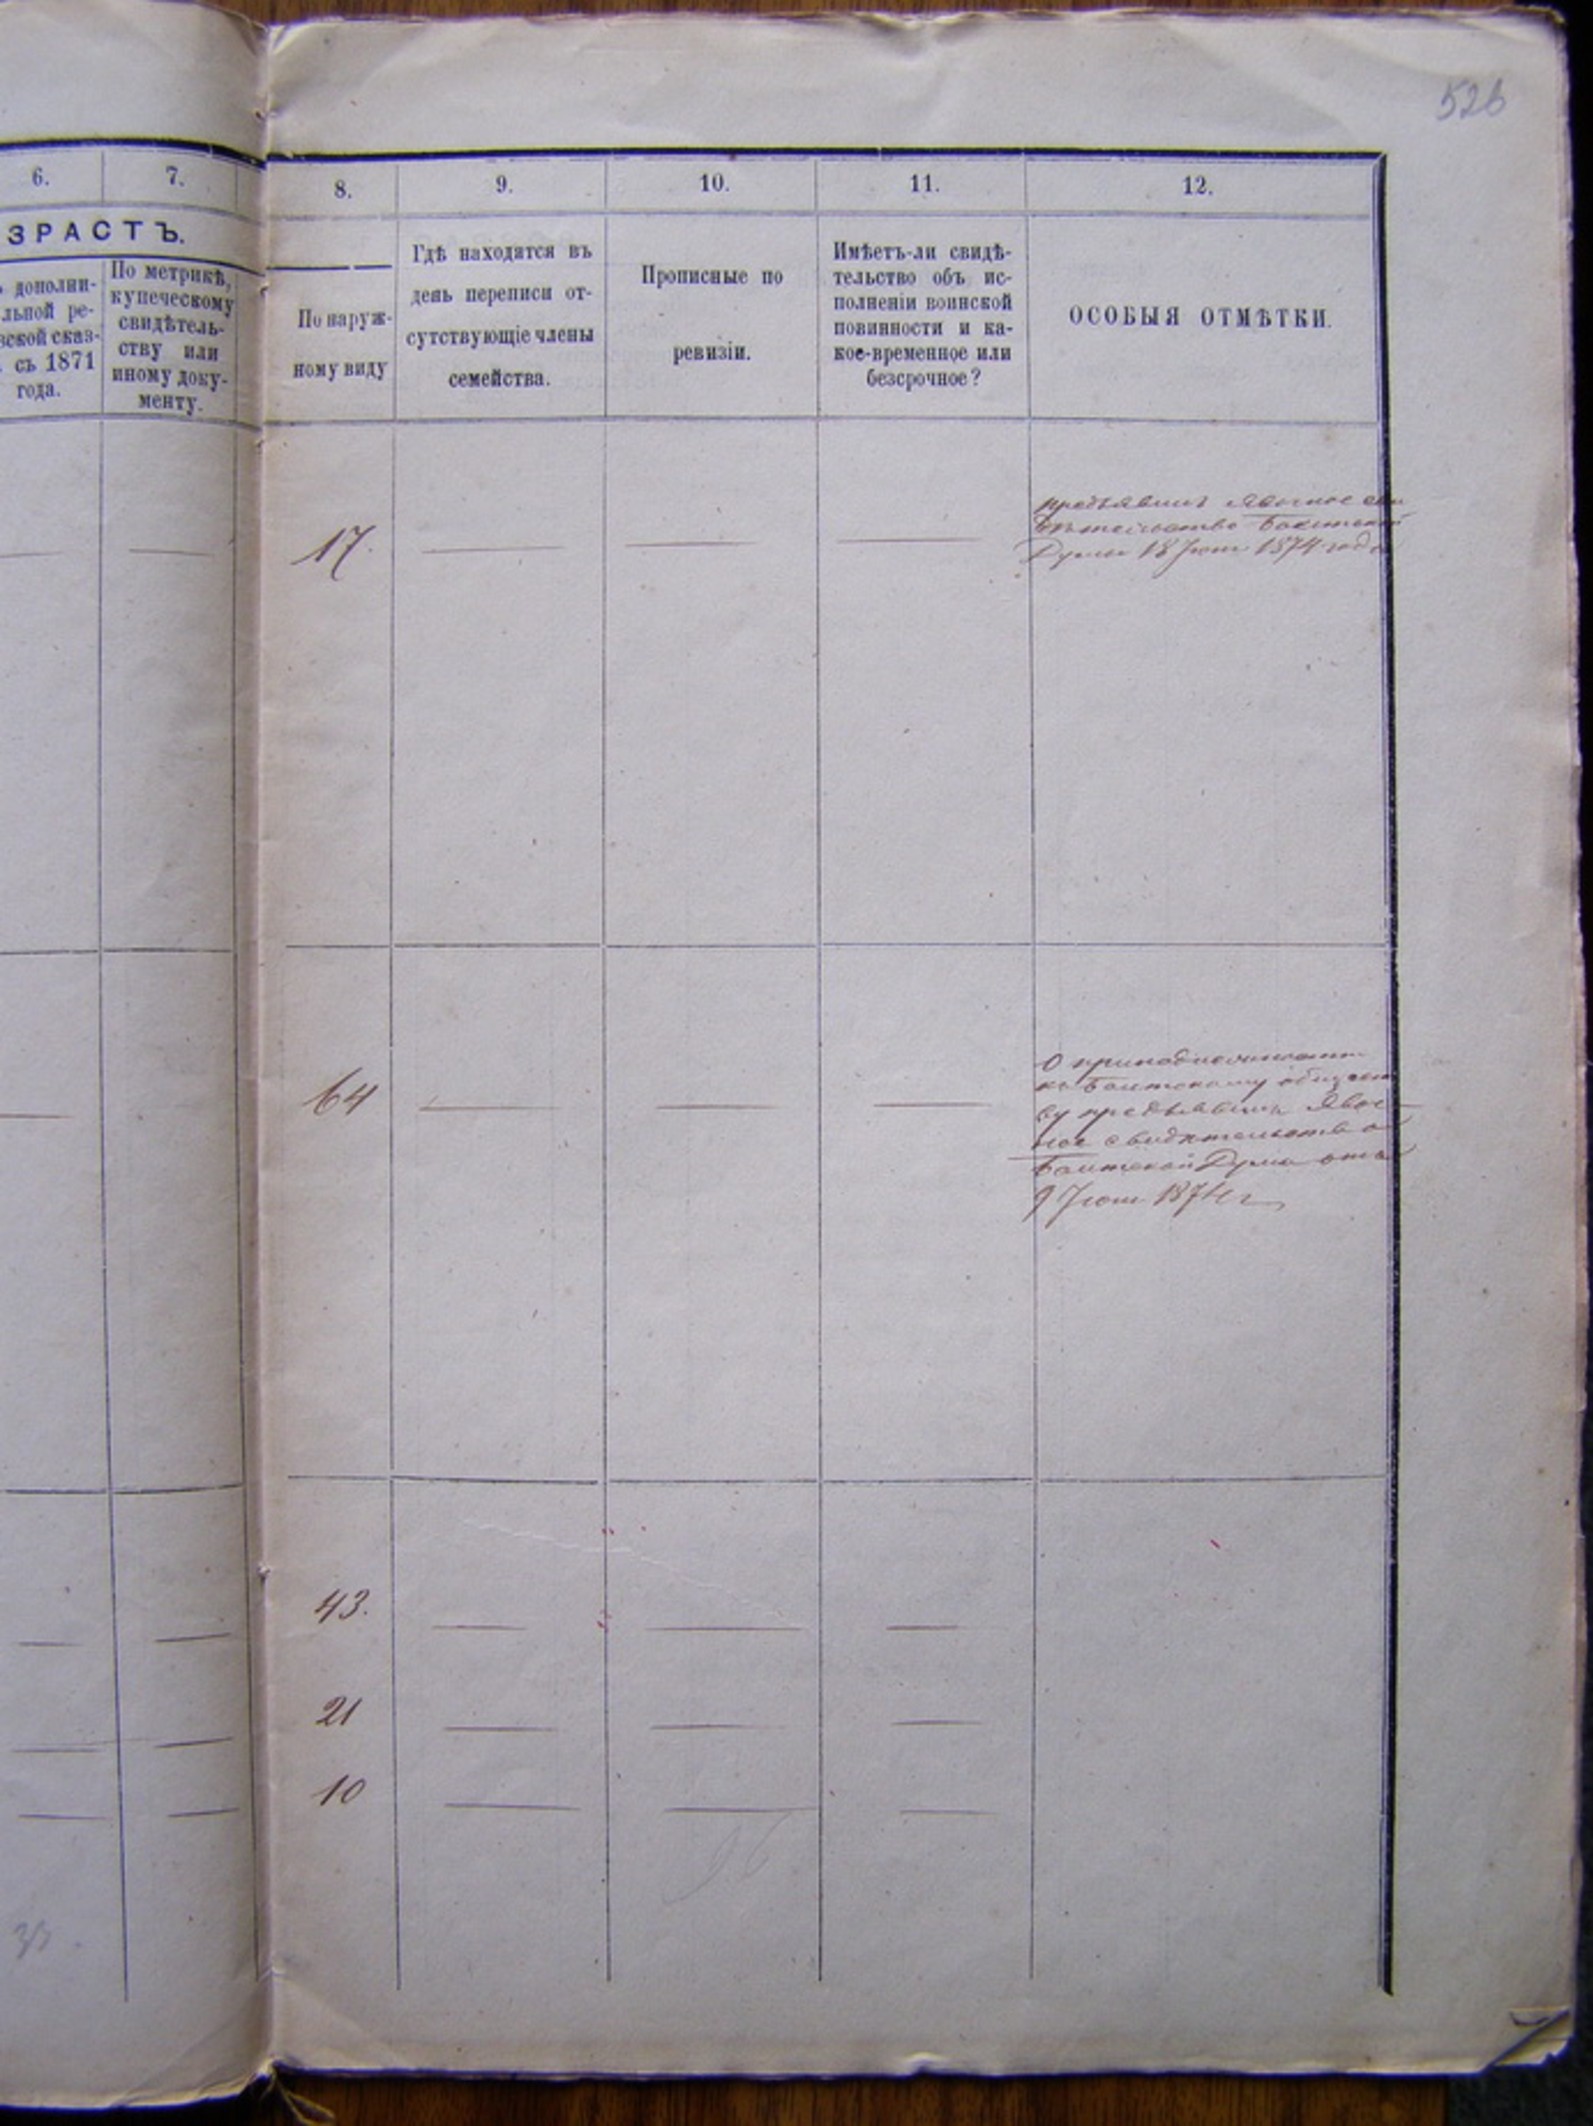 526
6. 7. 8. 9. 10. 11. 12.
ЗРАСТЪ.
дополни-
льной ре-
вской сказ-
съ 1871
года.
По метрикѣ,
купеческому
свидѣтель-
ству или
иному доку-
менту.
По наруж-
ному виду
Гдѣ находятся въ
день переписи от-
сутствующіе члены
семейства.
Прописные по
ревизіи.
Имѣетъ-ли свидѣ-
тельство объ ис-
полненіи воинской
повинности и ка-
кое-временное или
безсрочное?
ОСОБЫЯ ОТМѢТКИ.
17.
предъявилъ Явочное
Думы 18 1874 года
64
О принадлежности
къ обществ
ву предъявилъ Явоч-
ное свидѣтельство
Думы отъ
9 1874 г
43.
21
10